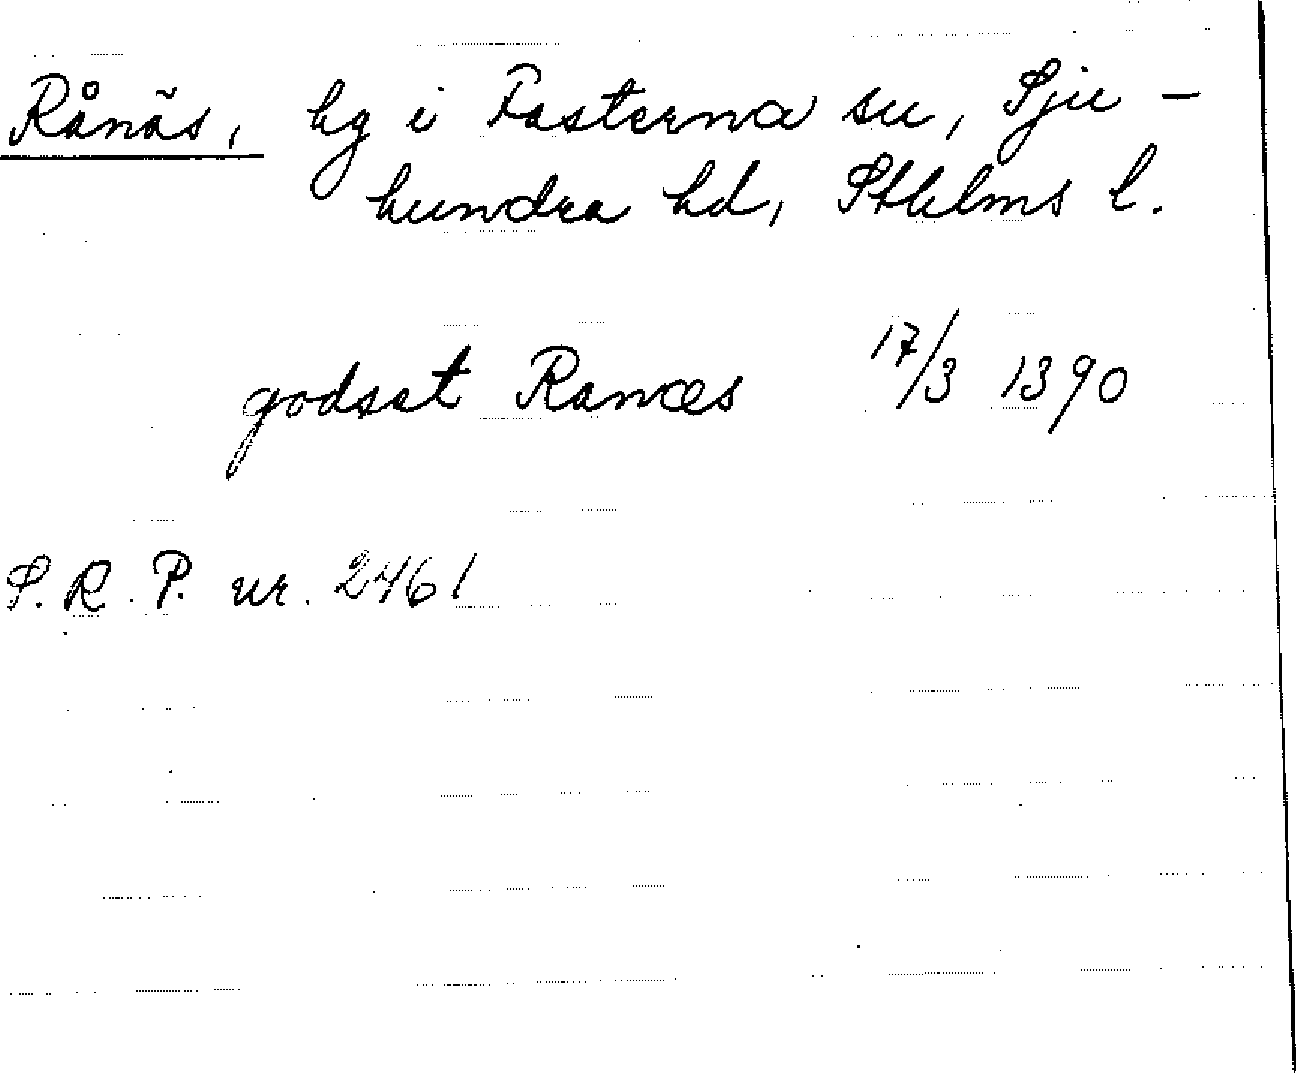 Rånäs, hg i Fasterna sn, Sju-
hundra hd, Sthlms l.
godset Ranæs 17/3 1390
S. R. P. nr. 2461